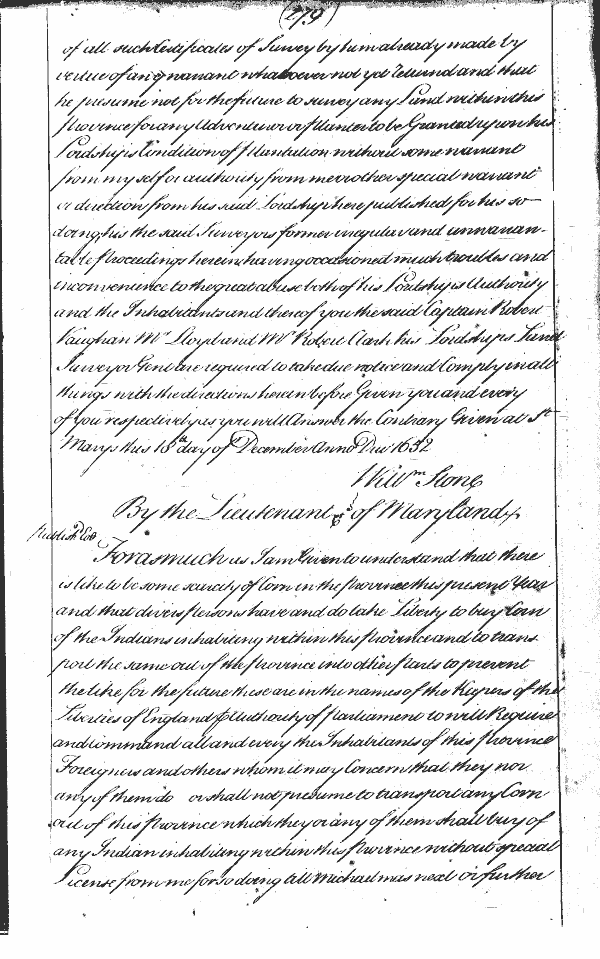 (279)
of all such Certificates of Survey by him already made by
vertue of any warrant whatsoever not yet Returned and that
he presume not for the future to survey any Land within this
Province for any Adventurer or Planter to be Granted upon his
Lordships Condition of Plantation without some warrant
from my self or authority from me or other special warrant
or direction from his said Lordship here published for his so
doing, his the said Surveyors former irregular and unwarran-
table Proceedings herein having occasioned much troubles and
inconvenience to the great abuse both of his Lordships Authority
and the Inhabitants and thereof you the said Captain Robert
Vaughan Mr Lloyd and Mr Robert Clark his Lordships Land
Surveyor Genl are required to take due notice and Comply in all
things with the directions herein before Given you and every
of you respectively as you will Answer the Contrary Given at St
Marys this 18th day of December Anno Dni 1652
Willm Stone
By the Lieutenant &c of Maryland
Publish Eod
Forasmuch as I am Given to understand that there
is like to be some scarcity of Corn in the Province this present Year
and that divers Persons have and do take Liberty to buy Corn
of the Indians inhabiting within this Province and to trans
port the same out of the Province into other Parts to prevent
the like for the future these are in the names of the Keepers of the
Liberties of England by Authority of Parliament to will Require
and command all and every the Inhabitants of this Province
Foreigners and others whom it may Concern that they nor
any of them do or shall not presume to transport any Corn
out of this Province which they or any of them shall buy of
any Indian inhabiting within this Province without special
License from me for so doing till Michael mas next or further